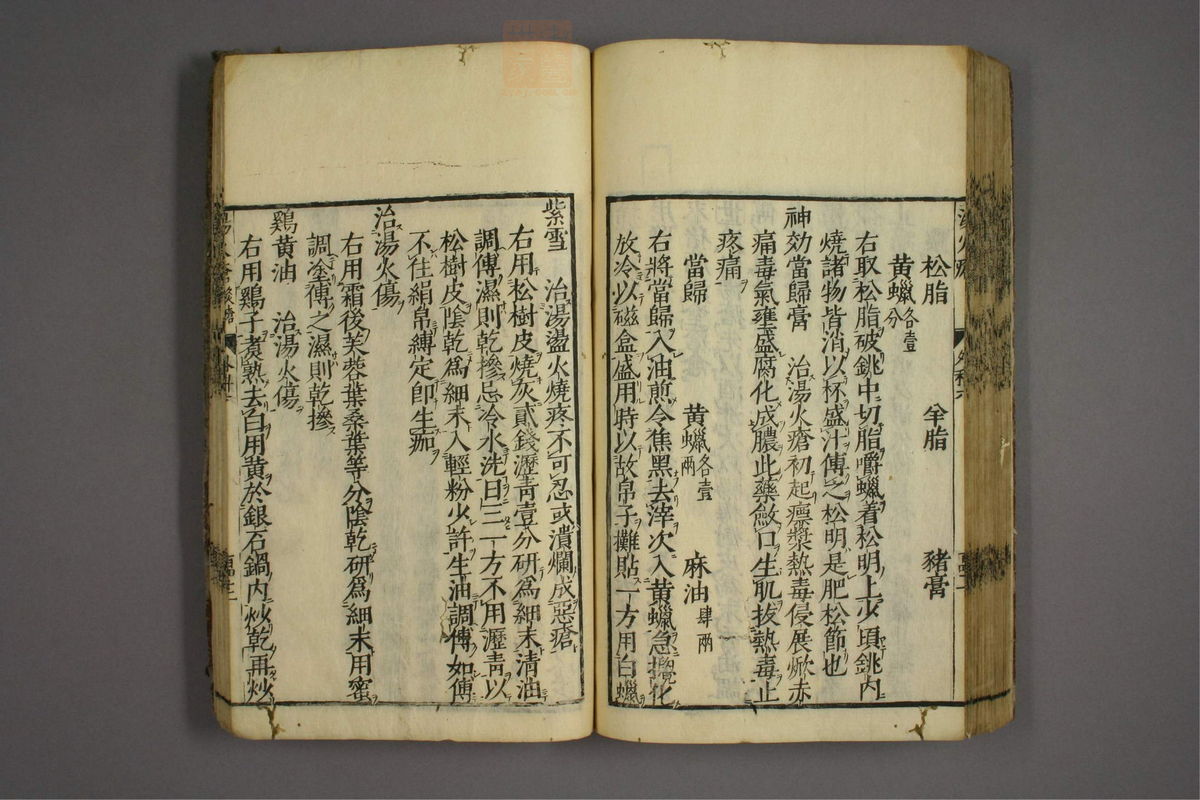 松脂　羊脂　豬膏
黄蠟各壹分
右取松脂破銚中切脂嚼蠟着松明上少頃銚内
燒諸物皆消以杯盛汁傅之松明是肥松節也
神効當歸膏　治湯火瘡初起瘭漿熱毒侵展焮赤
痛毒氣壅盛腐化成膿此藥斂口生肌拔熱毒止
疼痛
當歸　黄蠟各壹兩　麻油肆兩
右將當歸入油煎令焦黑去滓次入黄蠟急攪化
放冷以磁盒盛用時以故帛子攤貼一方用白蠟
紫雪　治湯盪火燒疼不可忍或潰爛成惡瘡
右用松樹皮燒灰貳錢瀝青壹分研爲細末清油
調傅濕則乾摻忌冷水洗日三一方不用瀝青以
松樹皮陰乾爲細末入輕粉少許生油調傅如傅
不住絹帛縛定卽生痂
治湯火傷
右用霜後芙蓉葉桑葉等分陰乾研爲細末用蜜
調塗傅之濕則乾摻
鷄黄油　治湯火傷
右用鷄子煮熟去白用黄於銀石鍋内炒乾再炒